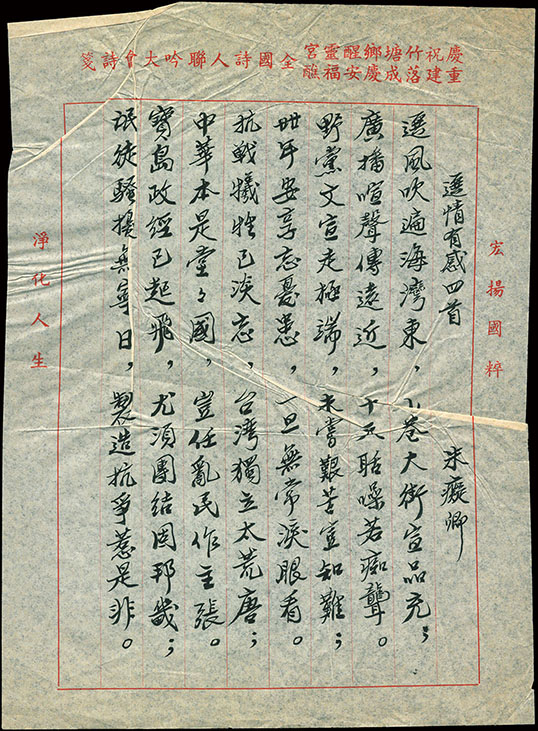 慶祝竹塘鄉醒靈宮
重建落成慶安福醮
全國詩人聯吟大會詩箋
宏揚國粹
選情有感四首 朱癡卿
選風吹遍海灣東,小巷大街宣品充;
廣播喧聲傳遠近,十天聒噪若痴聾。
野黨文宣走極端,未嘗艱苦豈知難;
卌年安享忘憂患,一旦無常淚眼看。
抗戰犧牲已淡忘,台灣獨立太荒唐;
中華本是堂々國,豈任亂民作主張。
寶島政經已起飛,尤須團結固邦畿;
氓徒騷擾無寧日,製造抗爭惹是非。
淨化人生